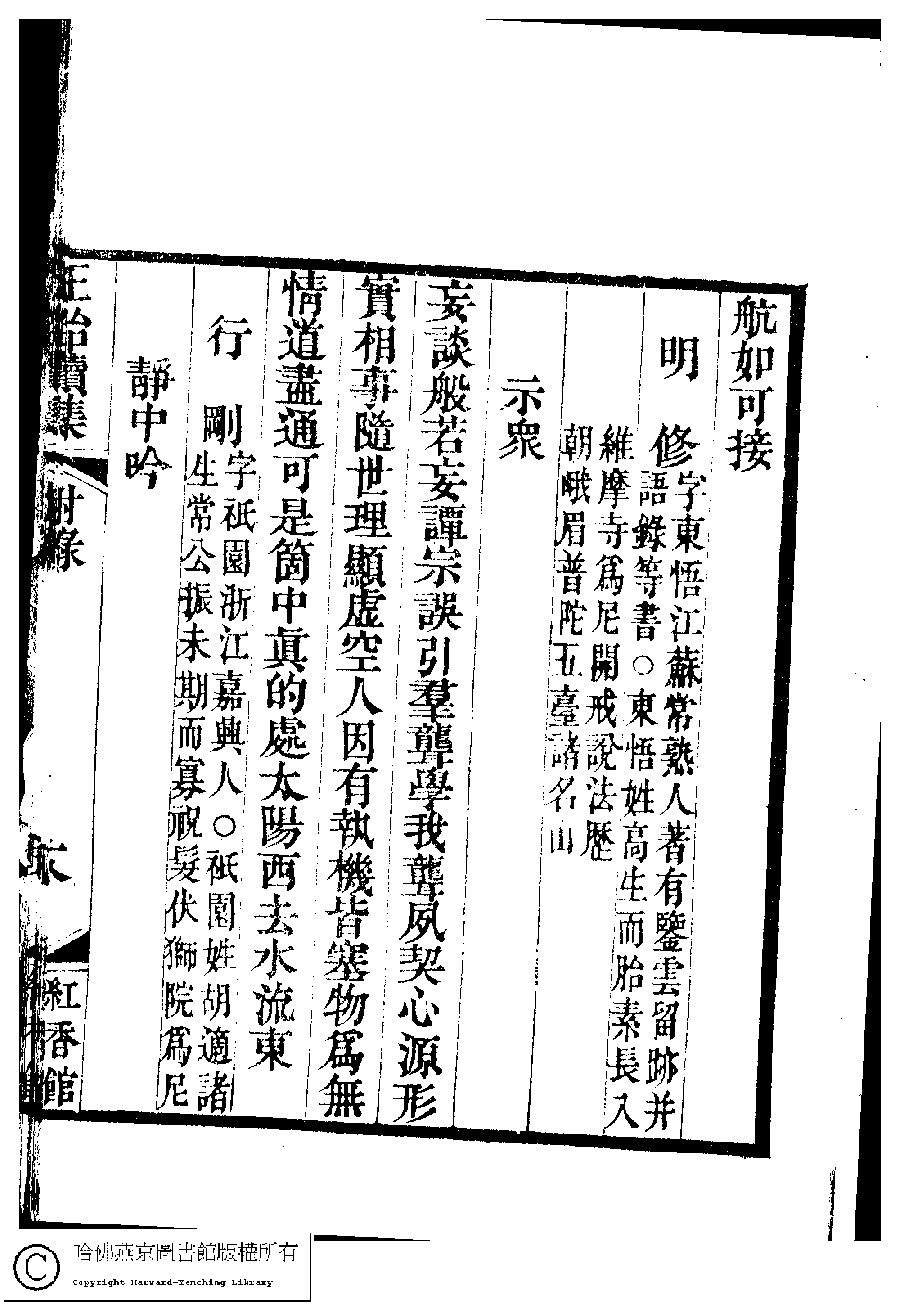 航如可接
明修
字東悟江蘇常熟人著有鑒雲留跡并
語錄等書○東悟姓高生而胎素長入
維摩寺爲尼開戒說法歷
朝峨眉普陀五臺諸名山
示衆
妄談般若妄譚宗誤引羣聾學我聾夙契心源形
實相事隨世理顯虛空人因有執機皆塞物爲無
情道盡通可是箇中眞的處太陽西去水流東
行剛
字祇園浙江嘉興人○祇園姓胡適諸
生常公振未期而寡祝髮伏獅院爲尼
靜中吟
正始續集
附錄
紅香館
哈佛燕京圖書館版權所有
Copyright Harvard-Yenching Library